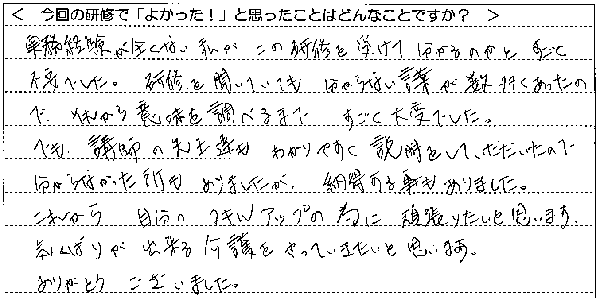 ＜ 今回の研修で「よかった！」と思ったことはどんなことですか？ ＞
実務経験が少くない私が この研修を受けて 分かるのかと すごく
大変でした。研修を聞いていても 分からない言葉が数多くあったの
で、それから意味を調べるまで すごく大変でした。
でも、講師の先生達も わかりやすく 説明をして、ただいたので
分からなかった所も ありましたが、納得する事もありました。
これから 自分の スキルアップの為に 頑張りたいと思います。
気くばりが出来る介護をやっていきたいと思います。
ありがとう ございました。